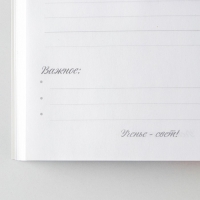 Важное:
Ученье - свет!